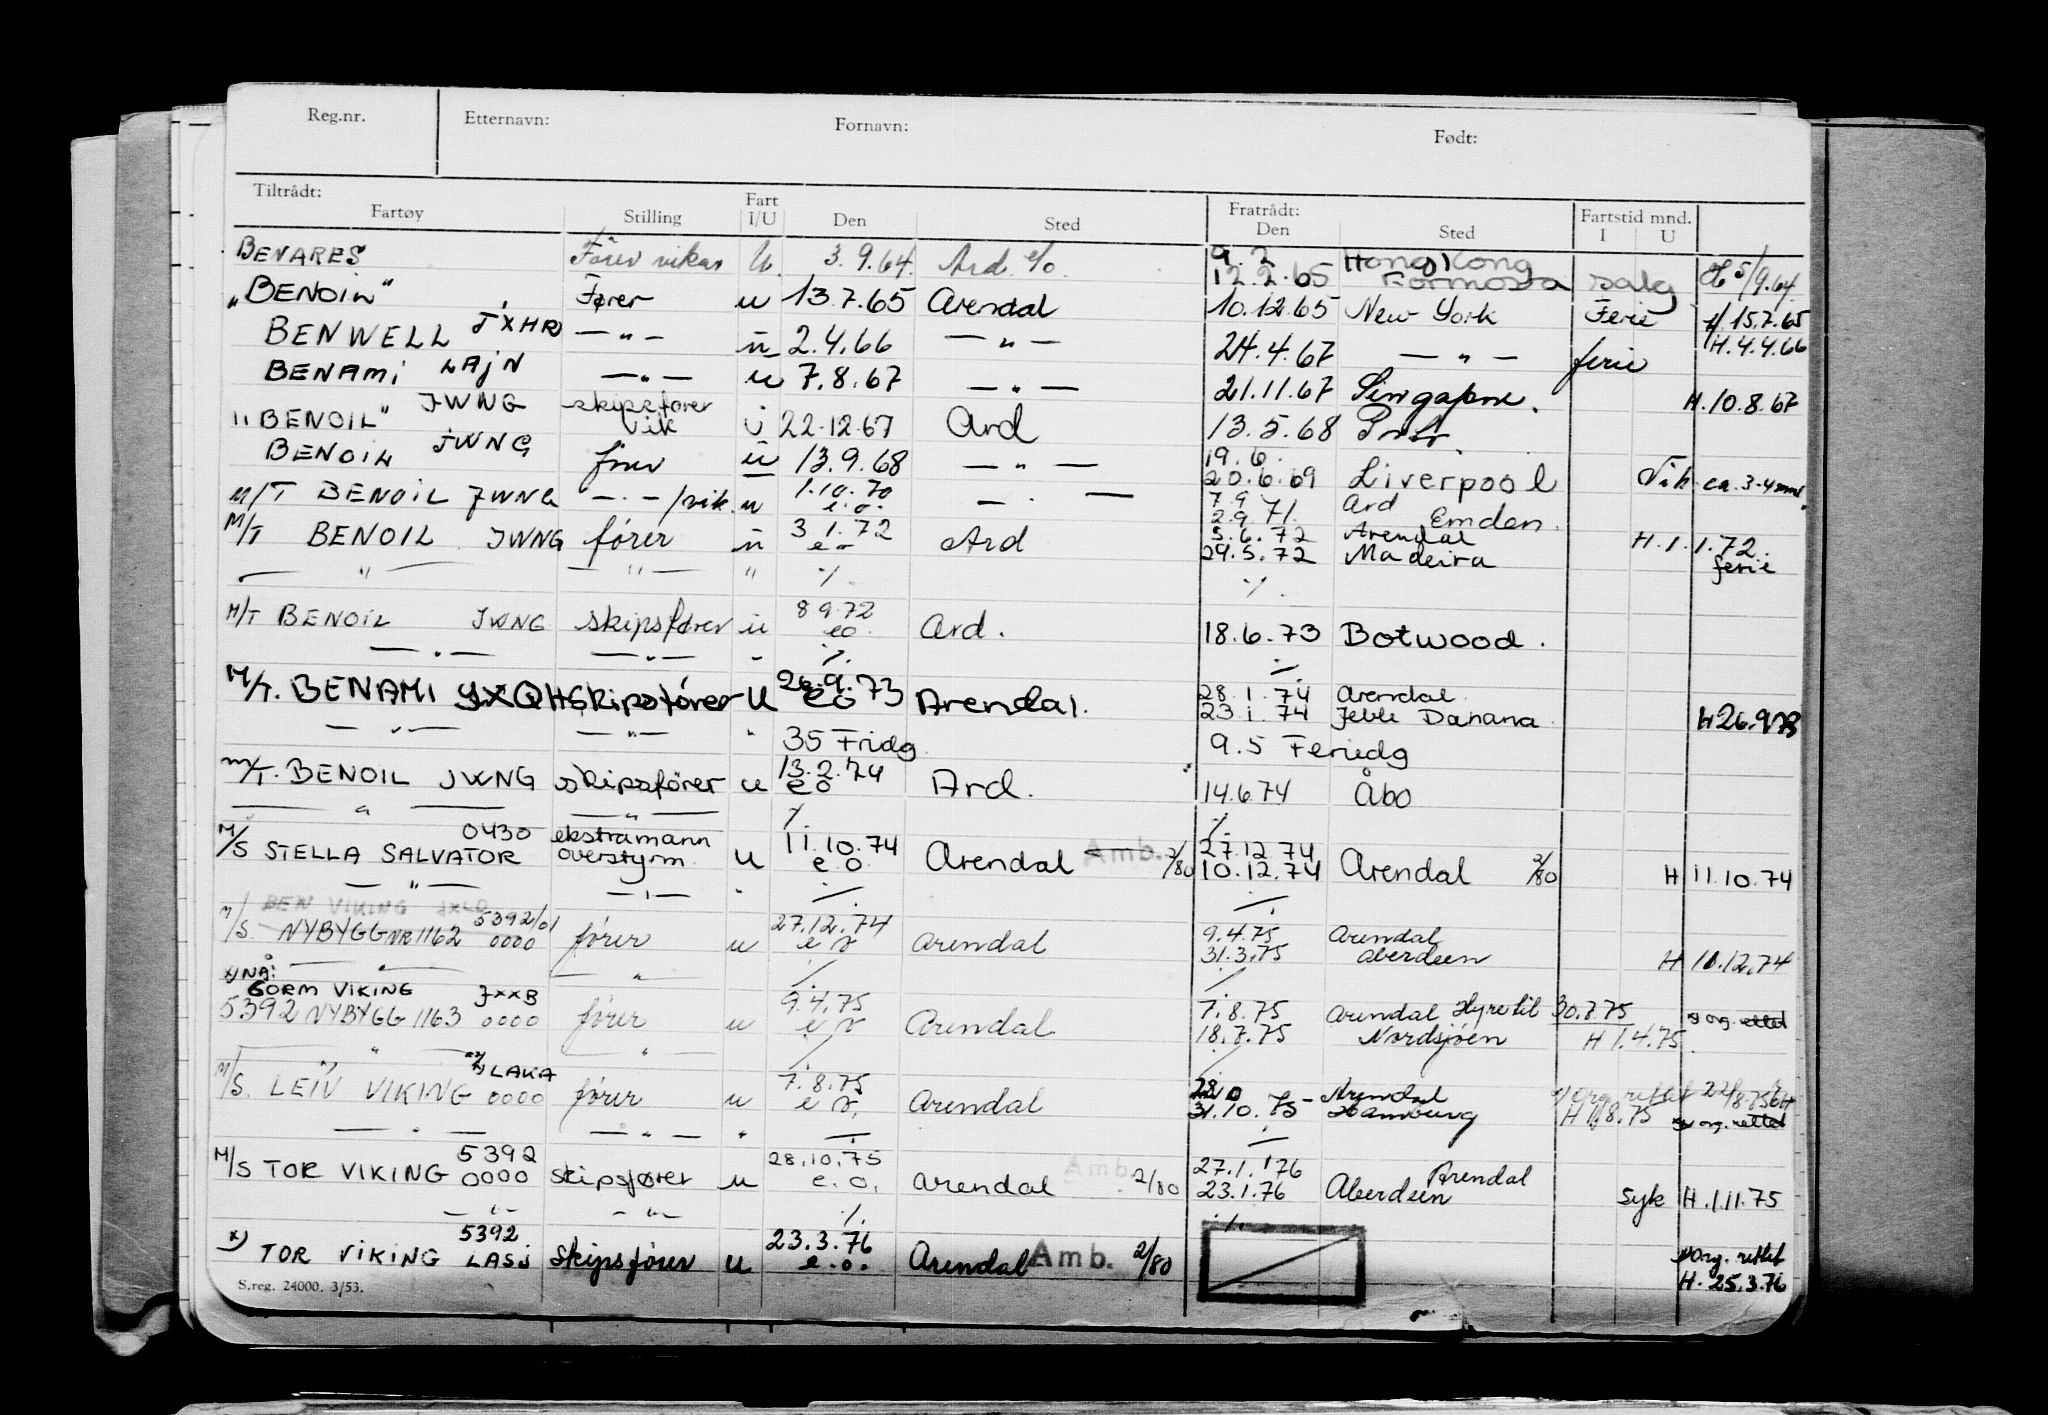 Reg.nr. Etternavn: Fornavn: Født:
Tiltrådt: Fartøy Stilling Fart I/U Den Sted Fratrådt: Den Sted Fartstid mnd. I U
BENARES Förer vikar U. 3.9.64. Ard e/o. 9.2 Hong Kong
12.2.65 Formosa salg H 5/9.64
"BENOIL" Fører u 13.7.65 Arendal 10.12.65 New York Ferie H.15.7.65
BENWELL JXHR — " — u 2.4.66 — " — 24.4.67 — " — ferie H.4.4.66
BENAMI LAJN — " — u 7.8.67 — " — 21.11.67 Singapore. H.10.8.67
"BENOIL" JWNG skipsfører vik u 22.12.67 Ard 13.5.68
BENOIL JWNG förer u 13.9.68 — " — 19.6.
20.6.69 Liverpool Vik ca. 3-4 mnd
M/T BENOIL JWNG — . — /vik. u 1.10.70 e.o. — . — 7.9 Ard
2.9.71. Emden.
M/T BENOIL JWNG fører u 3.1.72 eo Ard 5.6.72 Arendal
29.5.72 Madeira H.1.1.72. ferie
— " — — " — " ./. ./.
M/T BENOIL JWNG skipsfører u 8.9.72 eo. Ard. 18.6.73 Botwood.
— " — — " — " ./. ./.
M/T. BENAMI JXQH Skipsfører U 26.9.73 eo Arendal. 28.1.74 Arendal.
23.1.74 Jebb Danana H 26.9.73
— " — — " — " 35 Fridg. 9.5 Feriedg
M/T. BENOIL JWNG skipsfører u 13.2.74 eo Ard. 14.6.74 Åbo
— " — — " — ./. ./.
M/S STELLA SALVATOR 0430 ekstramann overstyrm. u 11.10.74 e.o. Arendal Amb. 2/80 27.12.74
10.12.74 Arendal 2/80 H 11.10.74
— " — — " — " ./. ./.
BEN VIKING JXLD
M/S. NYBYGG NR 1162 5392/01 0000 fører u 27.12.74 e o Arendal 9.4.75 Arendal
31.3.75 Aberdeen H 10.12.74
x) NÅ: — " — — " — ./. ./.
GORM VIKING JXXB
5392 NYBYGG 1163 0000 fører u 9.4.75 e o Arendal 7.8.75 Arendal Hyre til 30.7.75 x) org. rettet
18.7.75 Nordsjøen H 1.4.75.
— " — — " — ./. ./.
M/S. LEIV VIKING x) LAKA 0000 fører u 7.8.75 e o. Arendal 28.10 Arendal x) org rettet 22/8-75
31.10.75 Hamburg H 1.8.75 x) org. rettet
— " — — " — " ./. ./.
M/S TOR VIKING 5392 0000 skipsfører u 28.10.75 e.o. Arendal Amb. 2/80 27.1.76 Arendal
23.1.76 Aberdeen syk H.1.11.75
— " — — " — ./. ./.
x) TOR VIKING 5392 LASJ skipsfører u 23.3.76 e.o. Arendal Amb. 2/80 x) Org. rettet
H. 25.3.76
S.reg. 24000. 3/53.